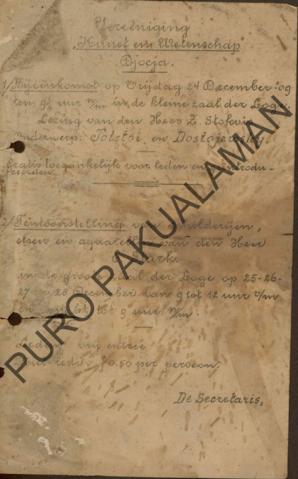 Vereeniging
"Kunst en Wetenschap"
Djocja.
1/ Bijeenkomst op Vrijdag 24 December '09
ten 9½ uur n/m in de kleine zaal der Loge.
Lezing van den Heer Z. Stokvis
onderwerp: Tolstoi en Dostojewsky
Gratis toegankelijk voor leden en introdu-
2/ Tentoonstelling van schilderijen,
en aquarellen van den Heer
in de groote zaal der Loge op 25-26-
27 en 28 December van 9 tot 12 uur v/m
tot 9 uur n/m.
leden vrij entrée
leden f 0.50 per persoon.
De Secretaris,
PURO PAKUALAMAN